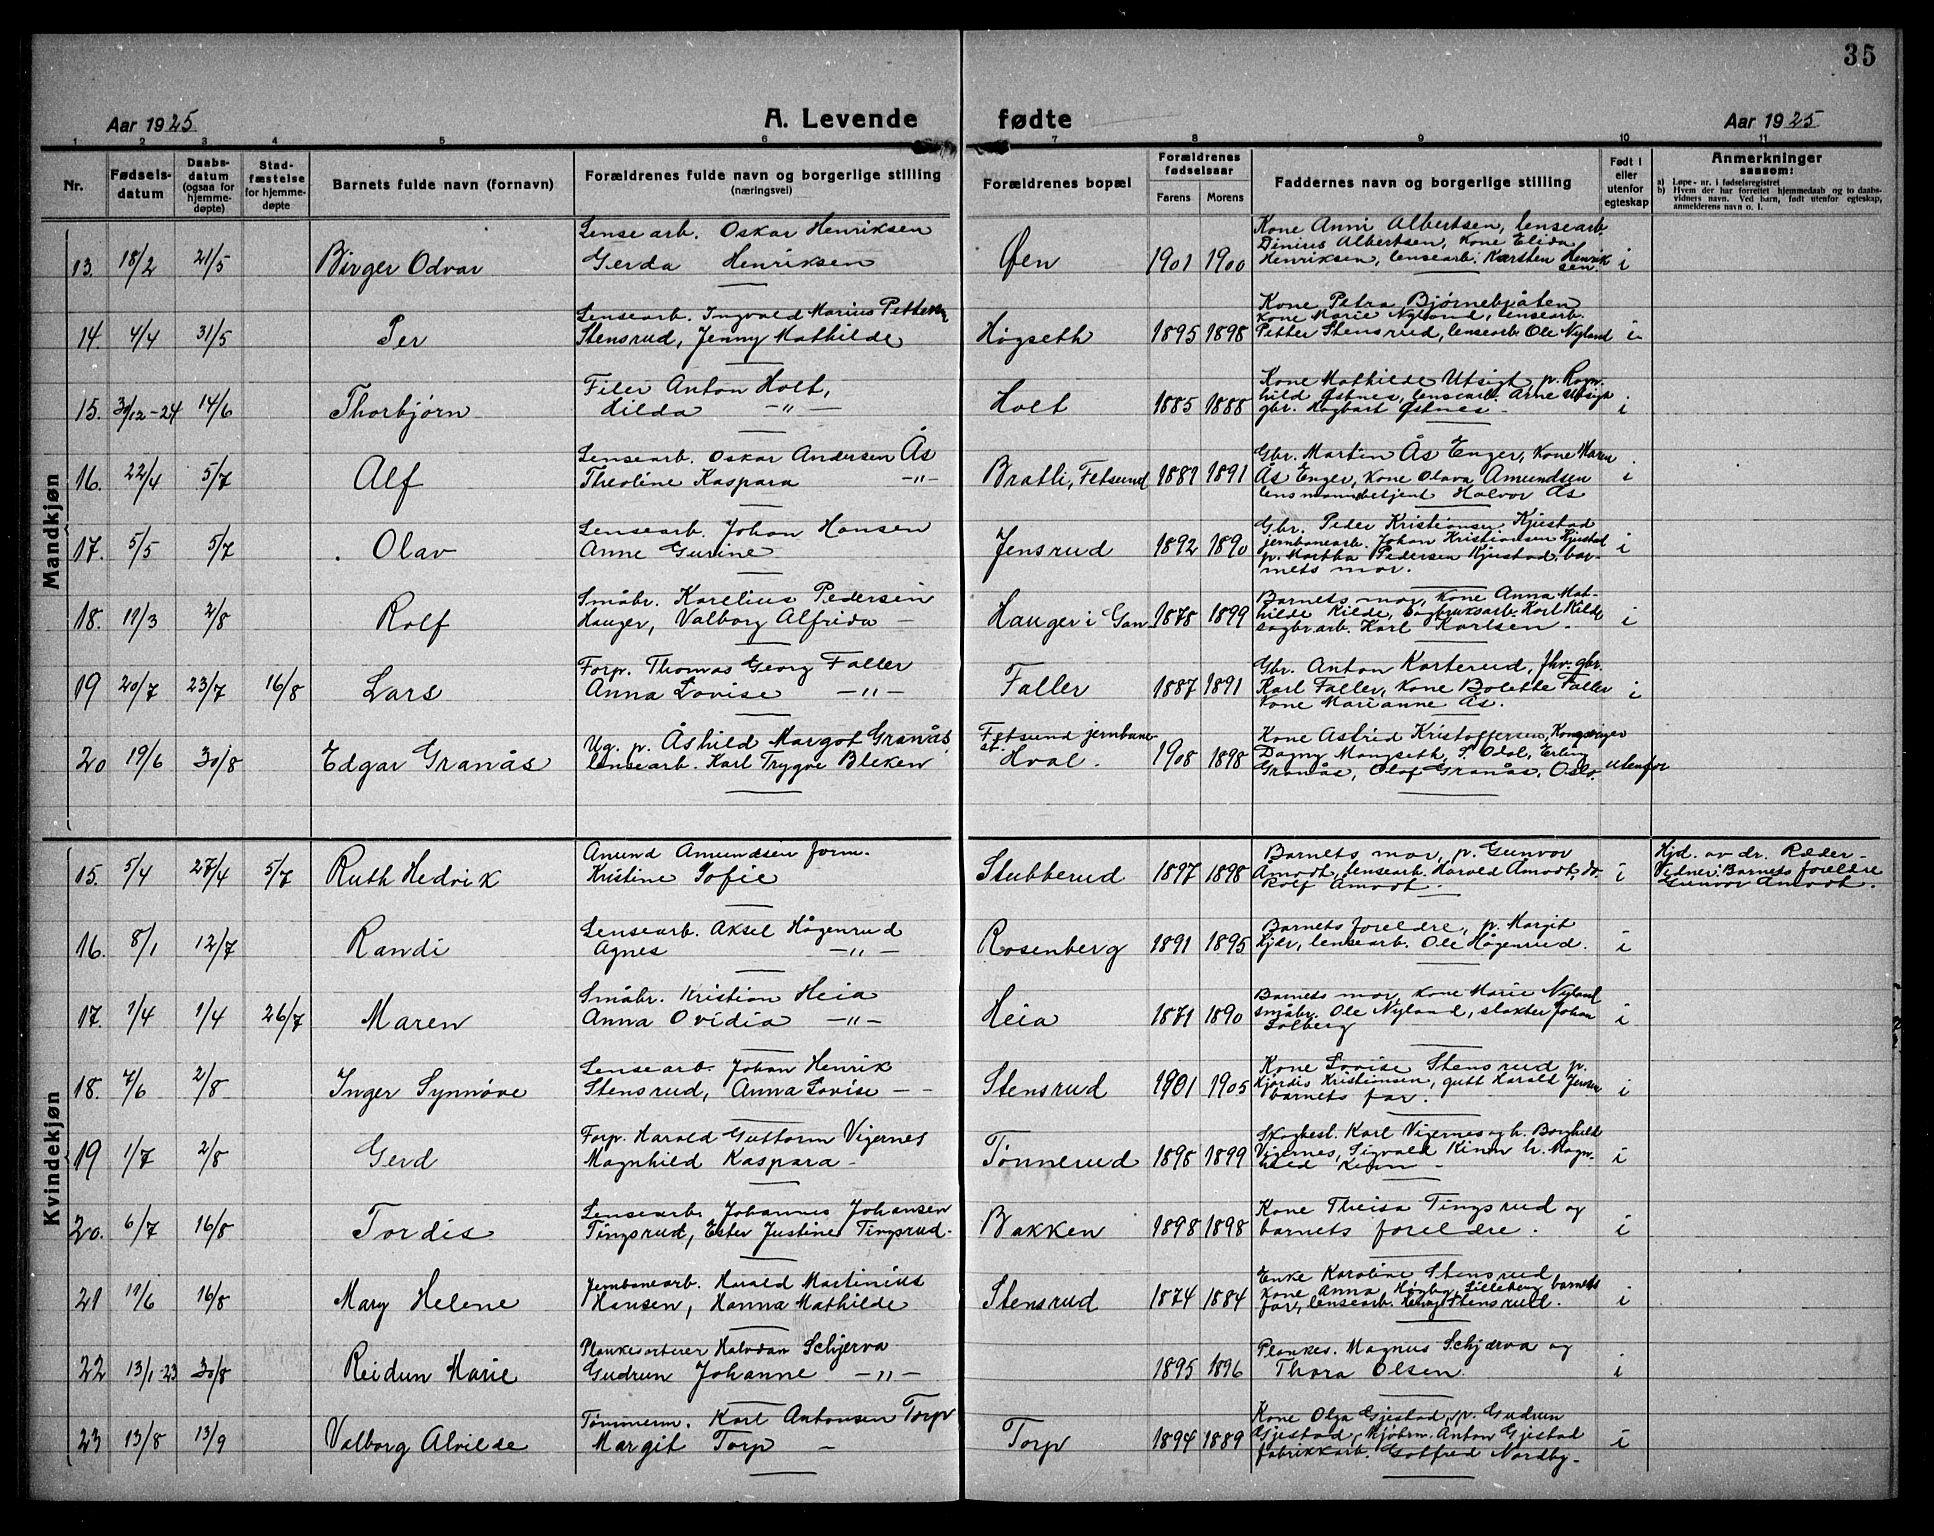 35
Aar 1925
A. Levende
fødte
Aar 1925
1 2 3 4 5 6 7 8 9 10 11
Nr.
Fødsels-
datum
Daabs-
datum
(ogsaa for
hjemme-
døpte)
Stad-
fæstelse
for hjemme-
døpte
Barnets fulde navn (fornavn)
Forældrenes fulde navn og borgerlige stilling
(næringsvei)
Forældrenes bopæl
Forældrenes
fødselsaar
Farens Morens
Faddernes navn og borgerlige stilling
Født i
eller
utenfor
egteskap
Anmerkninger
saasom:
a) Løpe-nr. i fødselsregistret
b) Hvem der har forrettet hjemmedaab og to daabs-
vidners navn. Ved barn, født utenfor egteskap,
anmelderens navn o. l.
Mandkjøn
13. 18/2 21/5 Birger Odvar
Lensearb. Oskar Henriksen
Gerda Henriksen
Øen 1901 1900
Kone Anni Albertsen, lensearb.
Dinius Albertsen, Kone Elida
Henriksen, lensearb. Karsten Henrik
sen. i
14. 4/4 31/5 Per
Lensearb. Ingvald Marius Pettersen
Stensrud, Jenny Mathilde
Høgseth 1895 1898
Kone Petra Bjørnebråten
Kone Marie Nyland, lensearb.
Petter Stensrud, lensearb. Ole Nyland i
15. 30/12-24 14/6 Thorbjørn
Filer Anton Holt,
Hilda —"—
Holt 1885 1888
Kone Mathilde Utsigt, p. Ragn-
hild Østnes, lensearb. Arne Utsigt
gbr. Hagbart Østnes - i
16. 22/4 5/7 Alf
Lensearb. Oskar Andersen Ås
Theoline Kaspara —"—
Bratli, Fetsund 1889 1891
Gbr. Martin Ås Enger, Kone Maren
Ås Enger, Kone Olava Amundsen
lensmannbetjent Halvor Ås i
17. 5/5 5/7 Olav
Lensearb. Johan Hansen
Anne Gurine
Jensrud 1892 1890
Gbr. Peder Kristiansen Kjustad
jernbanearb. Johan Kristiansen Kjustad
p. Martha Pedersen Kjustad, bar-
nets mor. i
18. 19/3 2/8 Rolf
Småbr. Karelius Pedersen
Hauger, Valborg Alfrida —
Hauger i Gan 1878 1899
Barnets mor, Kone Anna Mat-
hilde Kilde, sagbruksarb. Karl Kilde
sagbrarb. Karl Karlsen. i
19 20/7 23/7 16/8 Lars
Forp. Thomas Georg Faller
Anna Lovise —"—
Faller 1887 1891
Gbr. Anton Karterud, fhv. gbr.
Karl Faller, Kone Bolette Faller
Kone Marianne Ås. i
20 19/6 30/8 Edgar Granås
Ug. p. Åshild Margot Granås,
lensearb. Karl Trygve Bleken
Fetsund jernbane-
st. Hval. 1908 1898
Kone Astrid Kristoffersen, Kongsvinger
Dagny Mangseth, S. Odal, Erling
Granås, Olaf Granås, Oslo. utenfor
Kvindekjøn
15. 5/4 27/4 5/7 Ruth Hedvik
Amund Amundsen form.
Kristine Sofie
Stubberud 1897 1898
Barnets mor, p. Gunvor
Amodt, lensearb. Harald Amodt, do
Rolf Amodt. i
Hjd. av dr. Ræder-
Vidner: Barnets foreldre
Gunvor Amodt.
16. 8/1 12/7 Randi
Lensearb. Aksel Høgenrud
Agnes —"—
Rosenberg 1891 1895
Barnets foreldre, p. Margit
Kjær, lensearb. Ole Høgenrud. i
17. 1/4 1/4 26/7 Maren
Småbr. Kristian Heia
Anna Ovidia —"—
Heia 1871 1890
Barnets mor, Kone Marie Nyland
småbr. Ole Nyland, slakter Johan
Solberg i
18. 7/6 2/8 Inger Synnøve
Lensearb. Johan Henrik
Stensrud, Anna Lovise —
Stensrud 1901 1905
Kone Lovise Stensrud p.
Hjördis Kristiansen, gutt Harald Jensen
barnets far. i
19 1/7 2/8 Gerd
Forp. Harald Guttorm Vigernes
Magnhild Kaspara -
Tönnerud 1898 1899
Skogbest. Karl Vigernes og h. Borghild
Vigernes, Sigvald Kinn h. Magn-
hild Kinn - i
20. 6/7 16/8 Tordis
Lensearb. Johannes Johansen
Tingsrud, Ester Justine Tingsrud.
Bakken 1898 1898
Kone Theisa Tingsrud og
barnets foreldre. i
21 11/6 16/8 Mary Helene
Jernbanearb. Harald Martinius
Hansen, Hanna Mathilde
Stensrud 1874 1884
Enke Karoline Stensrud
Kone Anna Høgby, Lilleberg, barnets
far, lensearb. Stensrud. i
22 13/1-23 30/8 Reidun Marie
Plankesorterer Halvdan Schjerva
Gudrun Johanne —"—
1895 1896
Plankes. Magnus Schjærva og
Thora Olsen. i
23 13/8 13/9 Valborg Alvilde
Tømmerm. Karl Antonsen Torp
Margit Torp -
Torp 1894 1889
Kone Olga Gjestad, p. Gudrun
Gjestad, Anton Gjestad
fabrikkarb. Gotfred Nordby- i